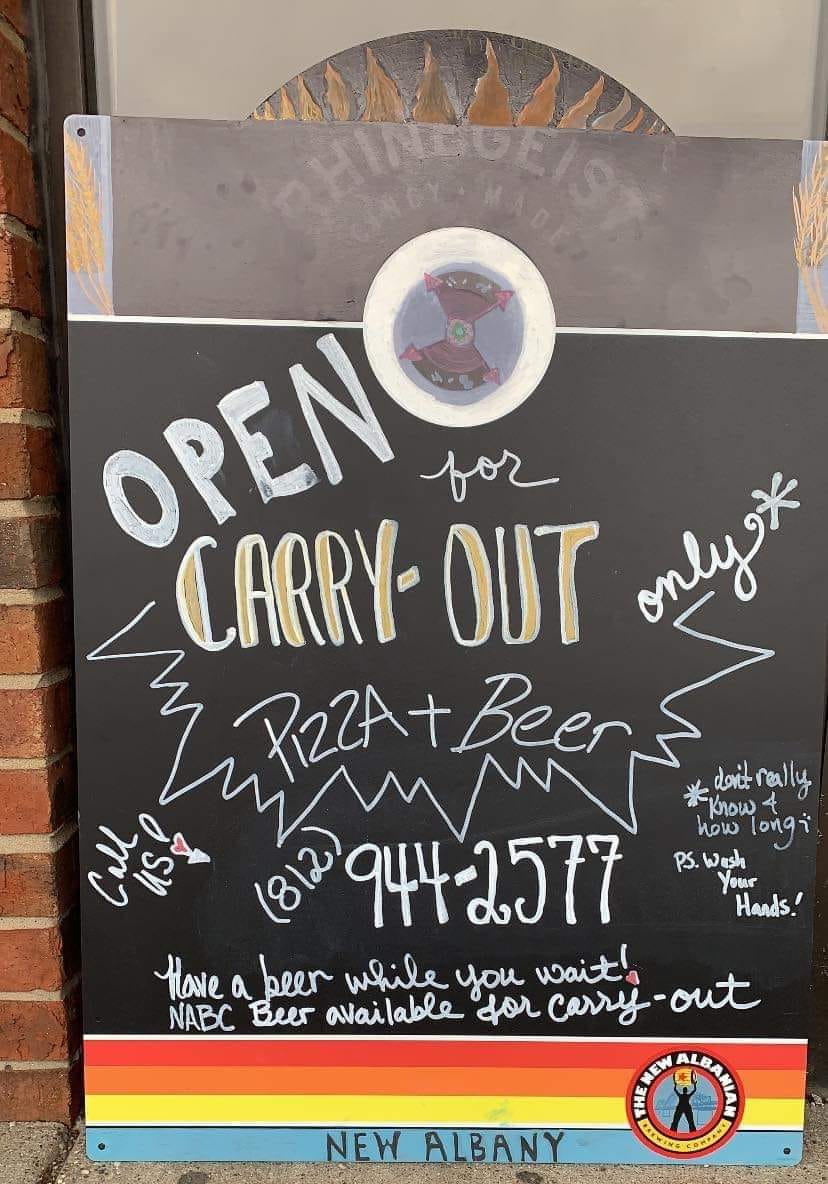 RHINEGEIST
CINCY • MADE
OPEN
for
CARRY-OUT
only*
PIZZA + Beer
*don't really
know 4
how long
P.S. Wash
Your
Hands!
Call
US!
(812) 944-2577
Have a beer while you wait!
NABC Beer available for carry-out
THE NEW ALBANIAN
BREWING COMPANY
NEW ALBANY